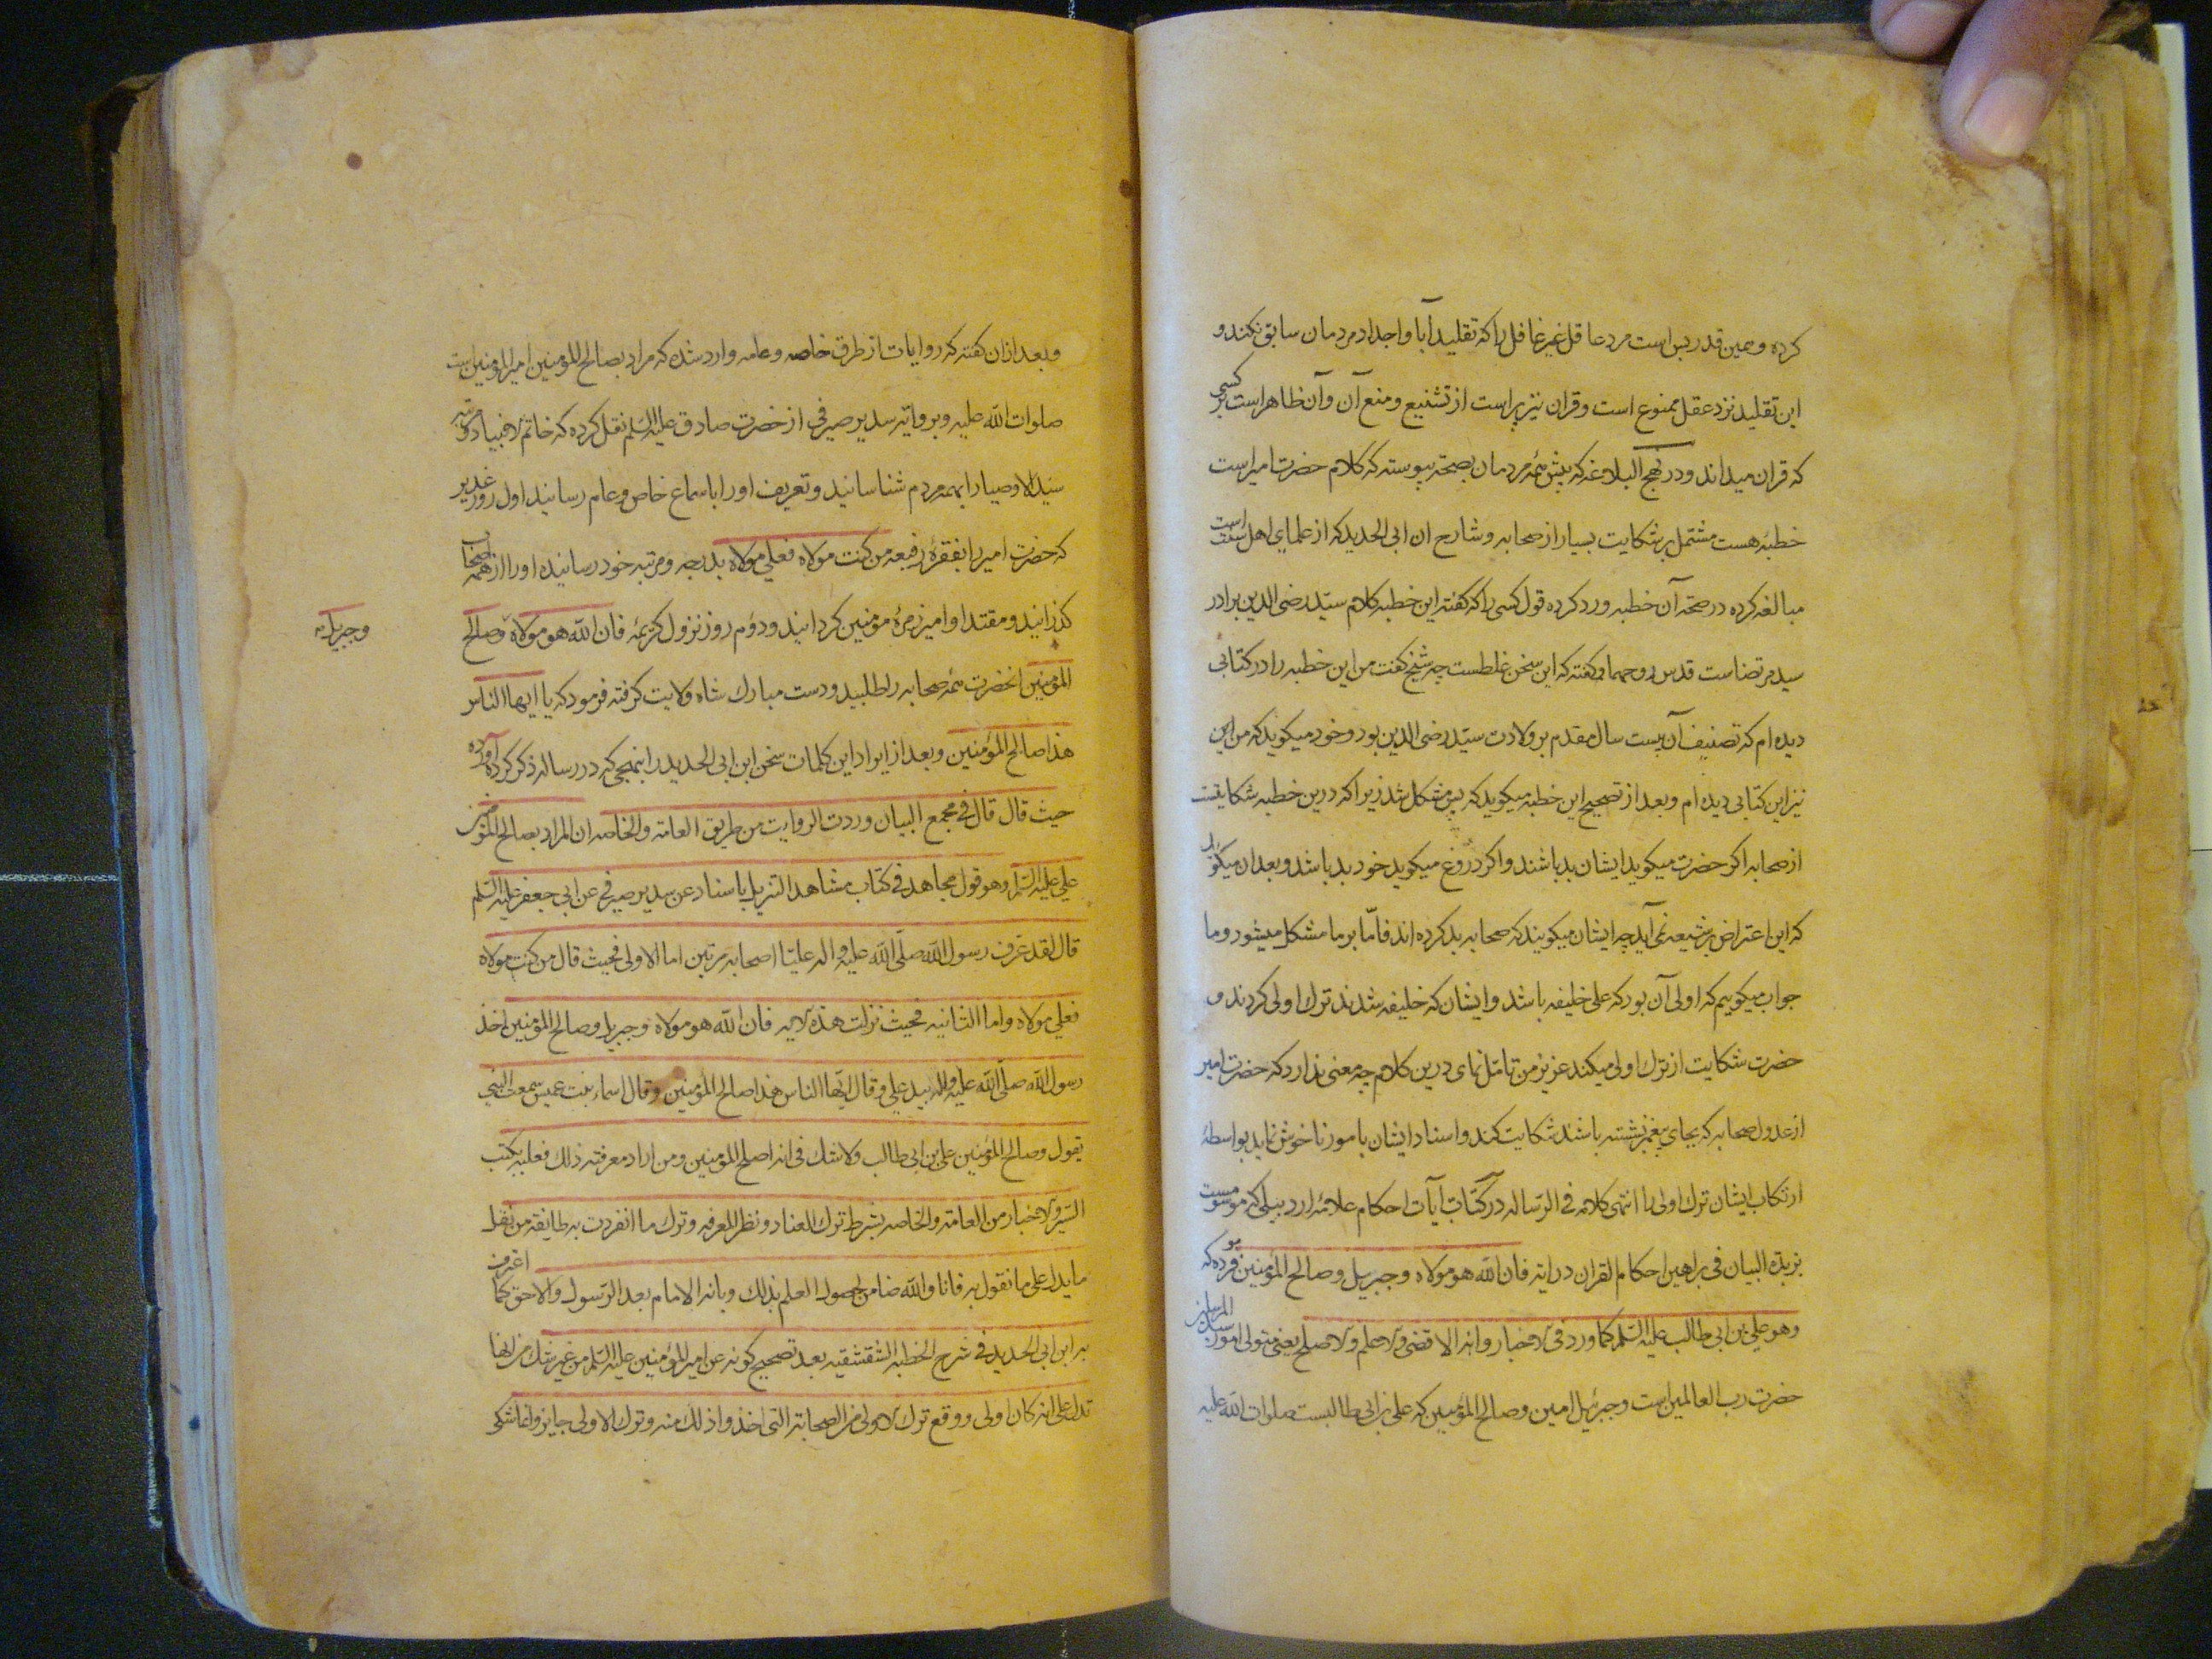 کرده و همین قدر بس است مرد عاقل غیر غافل را که تقلید آبا و اجداد مردمان سابق نکند و
این تقلید نزد عقل ممنوع است و قران نیز پر است از تشنیع و منع آن و آن ظاهر است بر کسی
که قران میداند و در نهج البلاغه که پیش همه مردمان بصحة پیوسته که کلام حضرت امیر است
خطبه هست مشتمل بر شکایت بسیار از صحابه و شارح ان ابی الحدید که از علمای اهل سنت است
مبالغه کرده در صحة آن خطبه و رد کرده قول کسی را که گفته این خطبه کلام سید رضی الدین برادر
سید مرتضا است قدس روحهما و گفته که این سخن غلطست چه شیخ گفت من این خطبه را در کتابی
دیده ام که تصنیف آن بیست سال مقدم بر ولادت سید رضی الدین بود و خود میکوید که من این
نیز این کتابی دیده ام و بعد از تصحیح این خطبه میکوید که پس مشکل شد زیرا که درین خطبه شکایتست
از صحابه اکر حضرت میکوید ایشان بد باشند و اکر دروغ میکوید خود بد باشد و بعد ان میکوید
که این اعتراض بر شیعه نمی آید چه ایشان میکویند که صحابه بد کرده اند فامّا بر ما مشکل میشود و ما
جواب میکوییم که اولی آن بود که علی خلیفه باشد و ایشان که خلیفه شدند ترک اولی کردند و
حضرت شکایت از ترک اولی میکند عزیز من تامل نمای درین کلام چه معنی ندارد که حضرت امیر
از عدول صحابه که بجای پیغمبر نشسته باشند شکایت کند و اسناد ایشان بامور ناخوش نماید بواسطهٔ
ارتکاب ایشان ترک اولی را انتهی کلامه فی الرساله در کتاب آیات احکام علامهٔ اردبیلی که موسومست
بزبدة البیان فی براهین احکام القران در ایه فان الله هو مولاه و جبریل و صالح المؤمنین فرموده که
وهو علی بن ابی طالب علیه السلم کما ورد فی الاخبار وانه الاقضی والاعلم والاصلح یعنی متولی امور سید المرسلین
حضرت رب العالمین است و جبرئیل امین و صالح المؤمنین که علی بن ابی طالبست صلوات الله علیه
و بعد ازان گفته که روایات از طرق خاصه و عامه وارد شده که مراد بصالح المؤمنین امیر المؤمنین است
صلوات الله علیه و بروایة سدیر صیرفی از حضرت صادق علیه السلم نقل کرده که خاتم الانبیا دو مرتبه
سید الاوصیا را بهمه مردم شناسانید و تعریف او را باسماع خاص و عام رسانید اول روز غدیر
که حضرت امیر را بفقرهٔ رفیعه من کنت مولاه فعلی مولاه بدرجه و مرتبه خود رسانیده او را از همه اصحاب
کذرانید و مقتدا و امیر زمرهٔ مؤمنین کردانید و دوم روز نزول کریمهٔ فان الله هو مولاه و صالح
و جبریل
المؤمنین انحضرت همهٔ صحابه را طلبید و دست مبارک شاه ولایت کرفته فرمود که یا ایها الناس
هذا صالح المؤمنین و بعد از ایراد این کلمات سخن ابن ابی الحدید را بنهجی که در رساله ذکر کرده آورده
حیث قال قال فی مجمع البیان وردت الروایت من طریق العامه والخاصه ان المراد بصالح المؤمنین
علی علیه السلم وهو قول مجاهد فی کتاب شاهد التنزیل باسناد عن سدیر صیرفی عن ابی جعفر علیه السلم
قال لقد عرف رسول الله صلّی الله علیه واله علیّا اصحابه مرتین اما الاولی فحیث قال من کنت مولاه
فعلی مولاه واما الثانیه فحیث نزلت هذه الایه فان الله هو مولاه وجبریل وصالح المؤمنین اخذ
رسول الله صلی الله علیه واله بید علی وقال ایها الناس هذا صالح المؤمنین وقال اسماء بنت عمیس سمعت النبی
یقول وصالح المؤمنین علی بن ابی طالب ولا شک فی انه اصلح المؤمنین ومن اراد معرفته ذلک فعلیه بکتب
السیر والاخبار من العامه والخاصه بشرط ترک العناد ونظر المعرفه وترک ما انفردت به طایفة من نقل
ما یدل علی ما نقول به فانا والله ضامن لحصول العلم بذلک وبانه الامام بعد الرسول والاحق کما اعترف
به ابن ابی الحدید فی شرح الخطبه الشقشقیه بعد تصحیح کونه عن امیر المؤمنین علیه السلم من غیر شک من انها
تدل علی انه کان اولی ووقع ترک الاولی من الصحابة التی اخذوا ذلک منه وترک الاولی جایز وانما شکی